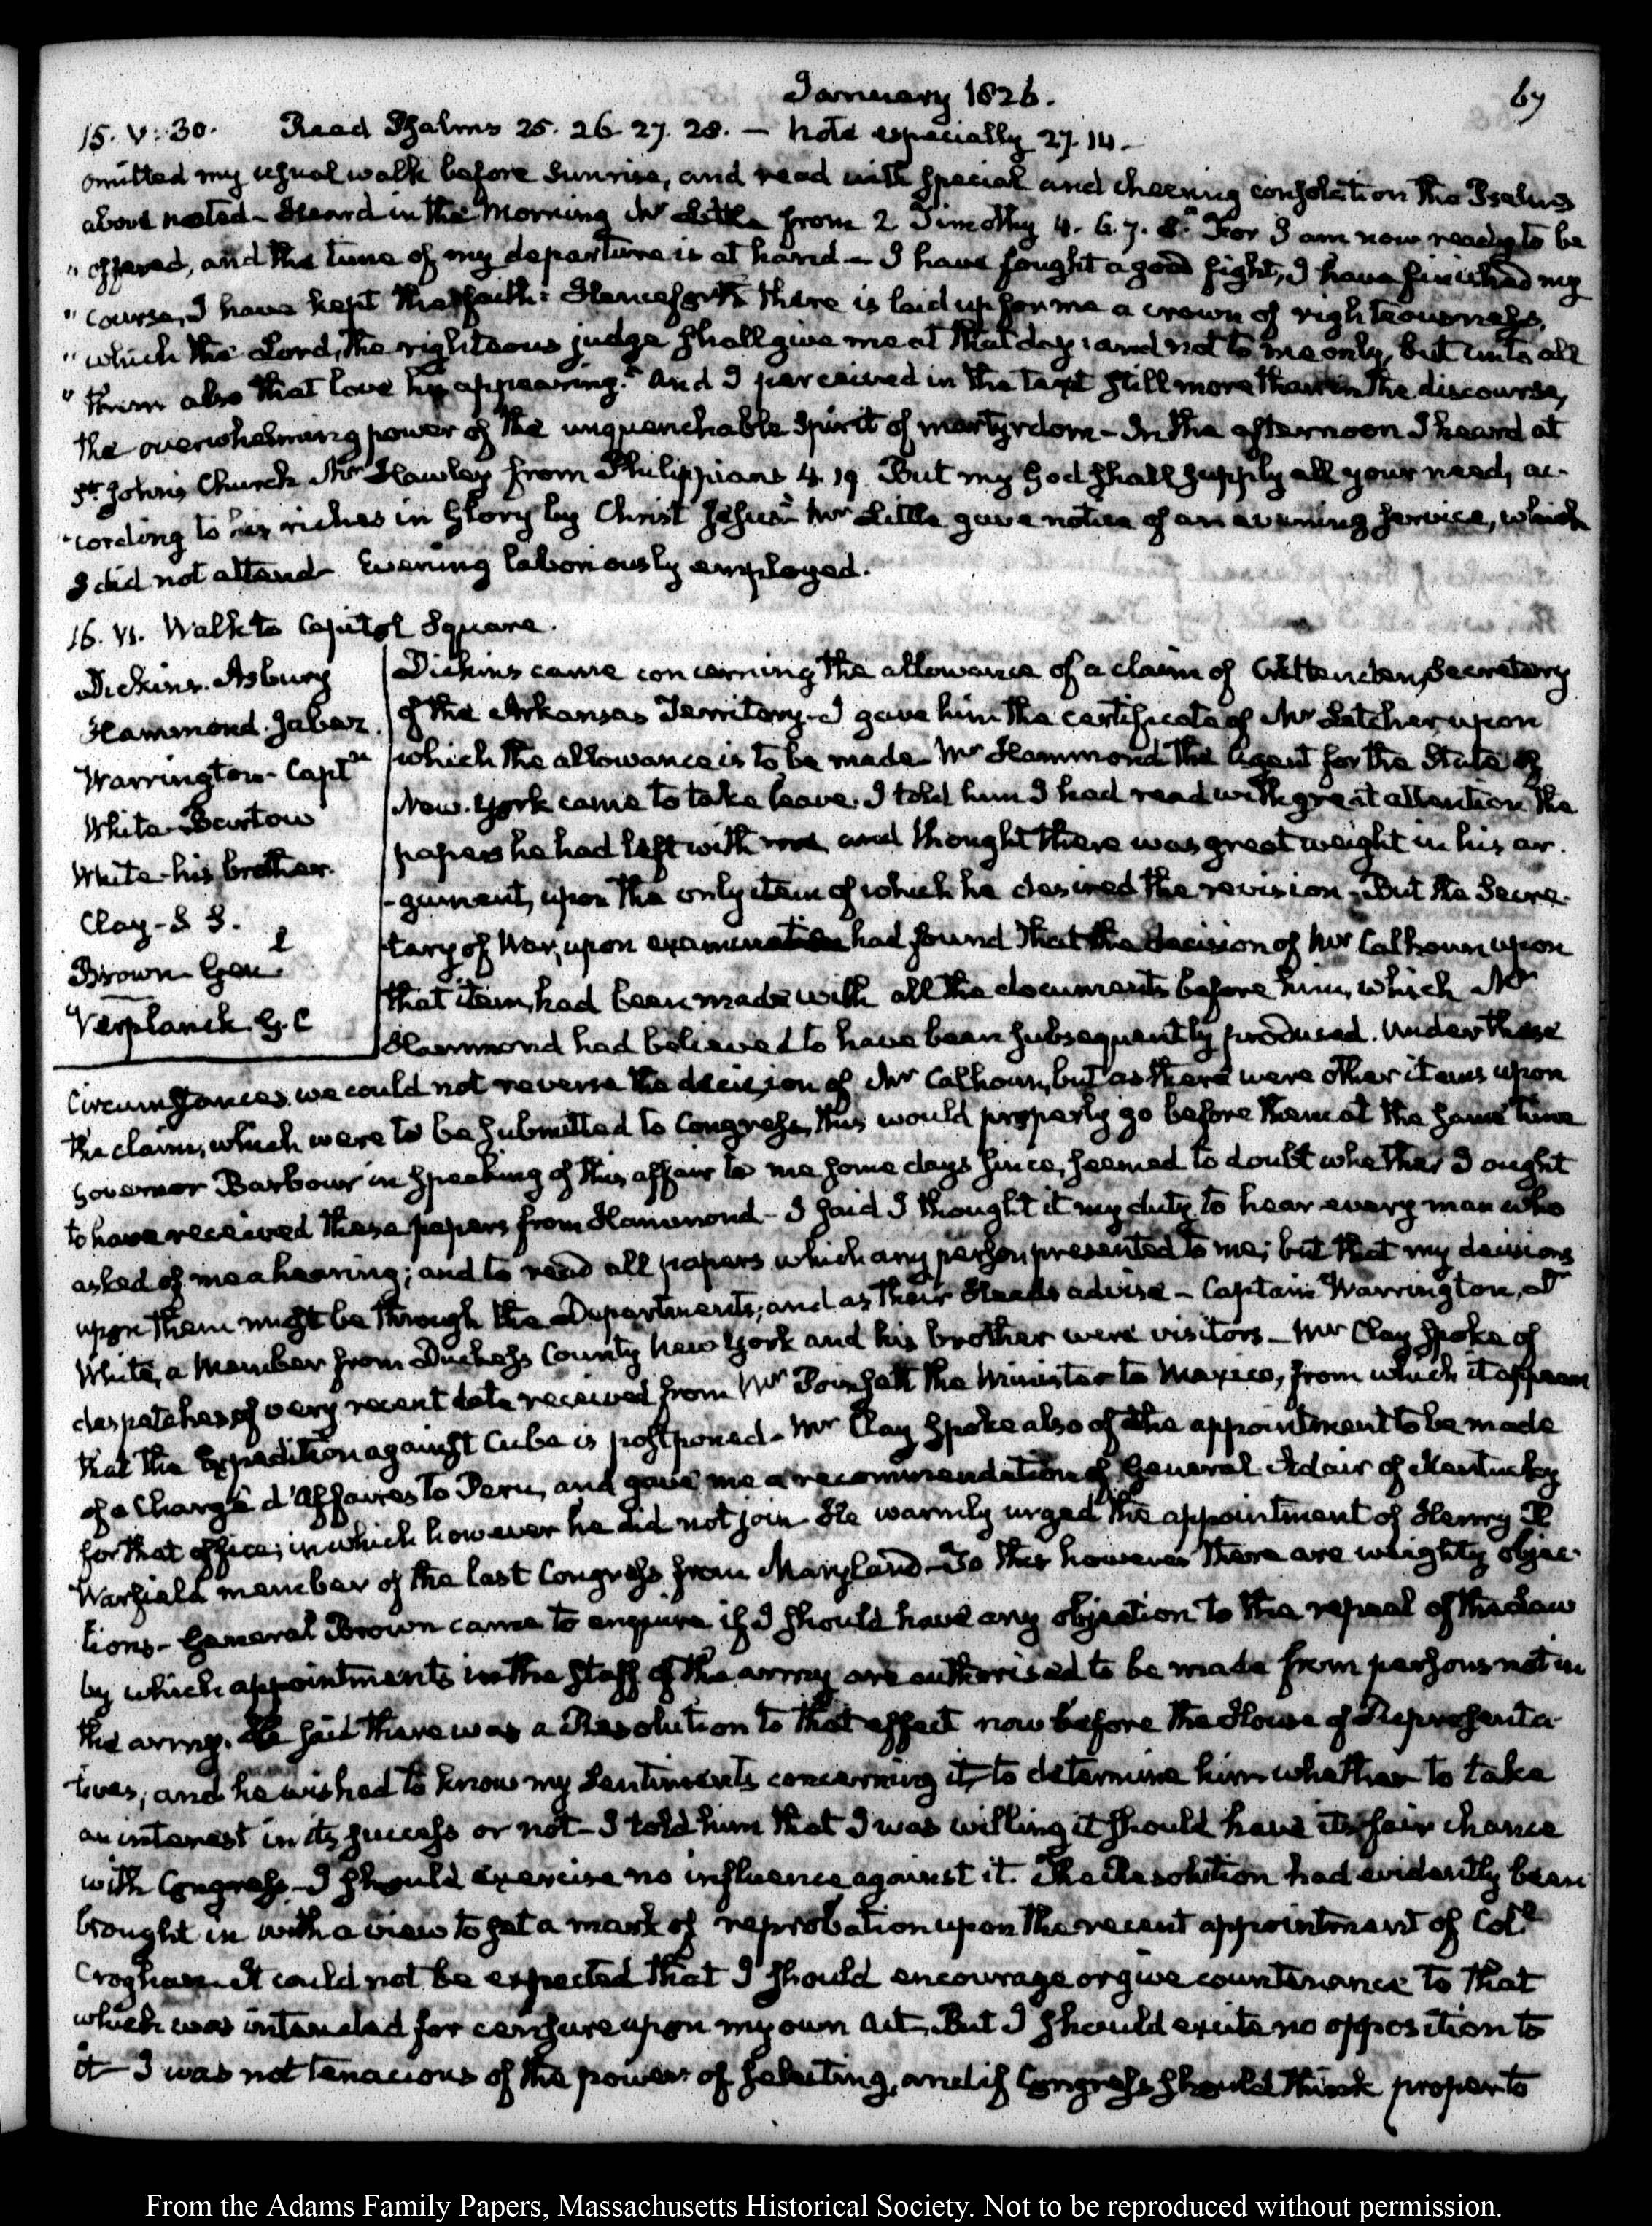 January 1826.
67
15. V: 30. Read Psalms 25. 26. 27. 28. — note especially 27. 14.
omitted my usual walk before Sunrise, and read with special and cheering consolation the Psalms
above noted — Heard in the Morning Mr Little from 2 Timothy 4. 6. 7. 8. "For I am now ready to be
"offered, and the time of my departure is at hand — I have fought a good fight, I have finished my
"course, I have kept the faith: Henceforth there is laid up for me a crown of righteousness,
"which the Lord, the righteous judge shall give me at that day: and not to me only, but unto all
"them also that love his appearing." And I perceived in the text still more than in the discourse,
the overwhelming power of the unquenchable Spirit of martyrdom — In the afternoon I heard at
St. John's Church Mr Hawley from Philippians 4. 19. But my God shall supply all your need, ac-
"cording to his riches in Glory by Christ Jesus" Mr Little gave notice of an evening service, which
I did not attend — Evening laboriously employed.
16. VI. Walk to Capitol Square.
Dickins. Asbury
Hammond. Jabez.
Warrington. Captn
White Bartow
White — his brother.
Clay — S. S.
Brown Genl
Verplanck. G. C
Dickins came concerning the allowance of a claim of Crittenden, Secretary
of the Arkansas Territory — I gave him the certificate of Mr Letcher, upon
which the allowance is to be made — Mr Hammond the Agent for the State of
New-York came to take leave. I told him I had read with great attention the
papers he had left with me, and thought there was great weight in his ar-
-gument, upon the only item of which he desired the revision — But the Secre-
tary of War, upon examination had found that the decision of Mr Calhoun upon
that item, had been made with all the documents before him, which Mr
Hammond had believed to have been subsequently produced. Under these
Circumstances we could not reverse the decision of Mr Calhoun, but as there were other items upon
the claim, which were to be submitted to Congress, this would properly go before them at the same time
Governor Barbour in speaking of this affair to me some days since, seemed to doubt whether I ought
to have received these papers from Hammond — I said I thought it my duty to hear every man who
asked of me a hearing; and to read all papers which any person presented to me; but that my decisions
upon them must be through the Departments, and as their Heads advise — Captain Warrington,
White, a Member from Duchess County New York and his brother were visitors — Mr Clay spoke of
despatches of very recent date received from Mr Poinsett the Minister to Mexico, from which it appears
that the Expedition against Cuba is postponed — Mr Clay spoke also of the appointment to be made
of a Chargé d'Affaires to Peru, and gave me a recommendation of General Adair of Kentucky
for that office; in which however he did not join — He warmly urged the appointment of Henry R
Warfield member of the last Congress from Maryland — To this however there are weighty objec-
tions — General Brown came to enquire if I should have any objection to the repeal of the Law
by which appointments in the staff of the army are authorised to be made from persons not in
the army. He said there was a Resolution to that effect now before the House of Representa-
tives, and he wished to know my Sentiments concerning it, to determine him whether to take
an interest in its success or not — I told him that I was willing it should have its fair chance
with Congress — I should exercise no influence against it. The Resolution had evidently been
brought in with a view to set a mark of reprobation upon the recent appointment of Coll
Croghan. It could not be expected that I should encourage or give countenance to that
which was intended for censure upon my own Act. But I should excite no opposition to
it — I was not tenacious of the power of selecting, and if Congress should think proper to
From the Adams Family Papers, Massachusetts Historical Society. Not to be reproduced without permission.